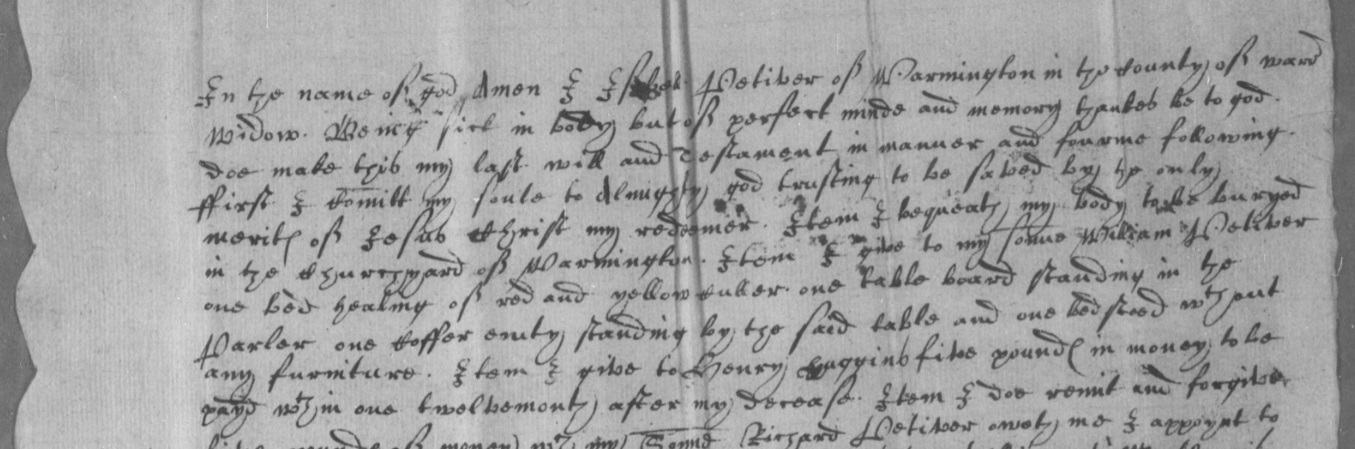 In the name of god Amen I Isabel Petiver of Warmington in the County of warr
widow. Being sick in body but of perfect minde and memory thankes be to god.
doe make this my last will and Testament in manner and fourme following.
ffirst I Comitt my soule to Almughty god trusting to be saved by the only
merits of Jesus Christ my redeemer. Item I bequeath my body to be buryed
in the Churchyard of Warmington. Item I give to my sonne William Petiver
one bed healing of red and yellow culler one table board standing in the
Parler one Coffer emty standing by the said table and one bedsteed wth out
any furniture. Item I give to Henry Huggins five pounds in money to be
payd wth in one twelvemonth after my decease. Item I doe remit and forgive
of money wch my Sonne Richard Petiver oweth me I appoynt to